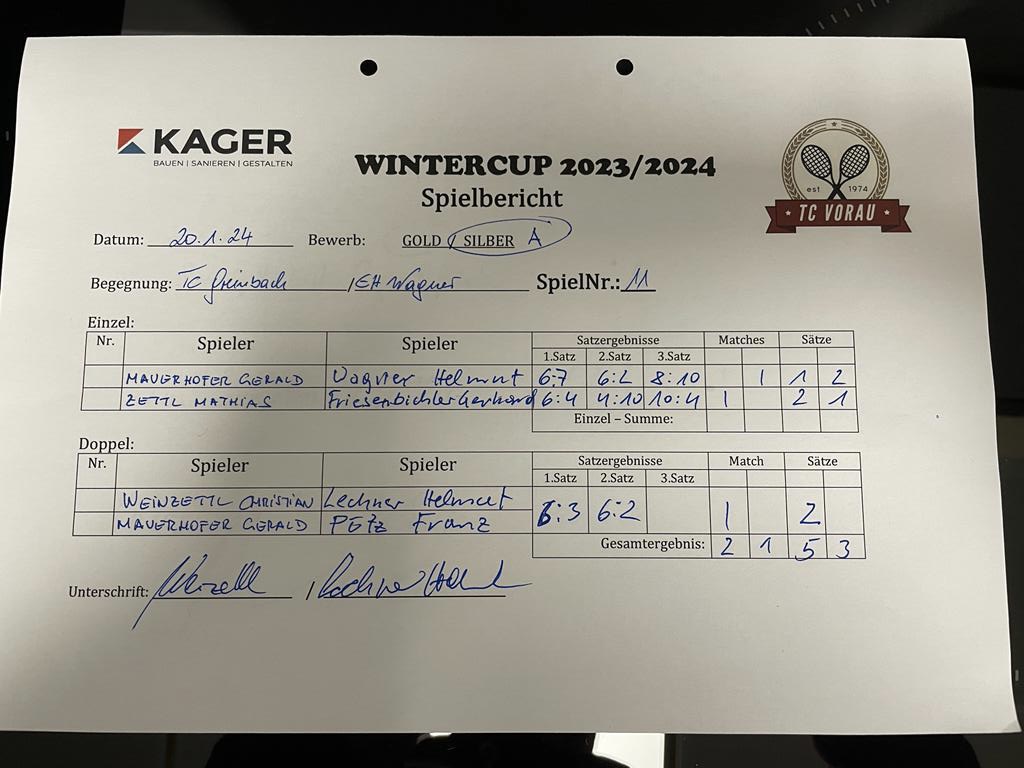 KAGER
BAUEN | SANIEREN | GESTALTEN
WINTERCUP 2023/2024
Spielbericht
est 1974
TC VORAU
Datum: 20.1.24 Bewerb: GOLD / SILBER A
Begegnung: TC Greinbach / EH Wagner SpielNr.: 11
Einzel:
Nr. Spieler Spieler Satzergebnisse Matches Sätze
1.Satz 2.Satz 3.Satz
MAUERHOFER GERALD Wagner Helmut 6:7 6:2 8:10 1 1 2
ZETTL MATHIAS Friesenbichler Gerhard 6:4 4:10 10:4 1 2 1
Einzel – Summe:
Doppel:
Nr. Spieler Spieler Satzergebnisse Match Sätze
1.Satz 2.Satz 3.Satz
WEINZETTL CHRISTIAN Lechner Helmut
MAUERHOFER GERALD PETZ Franz 6:3 6:2 1 2
Gesamtergebnis: 2 1 5 3
Unterschrift: / Lechner